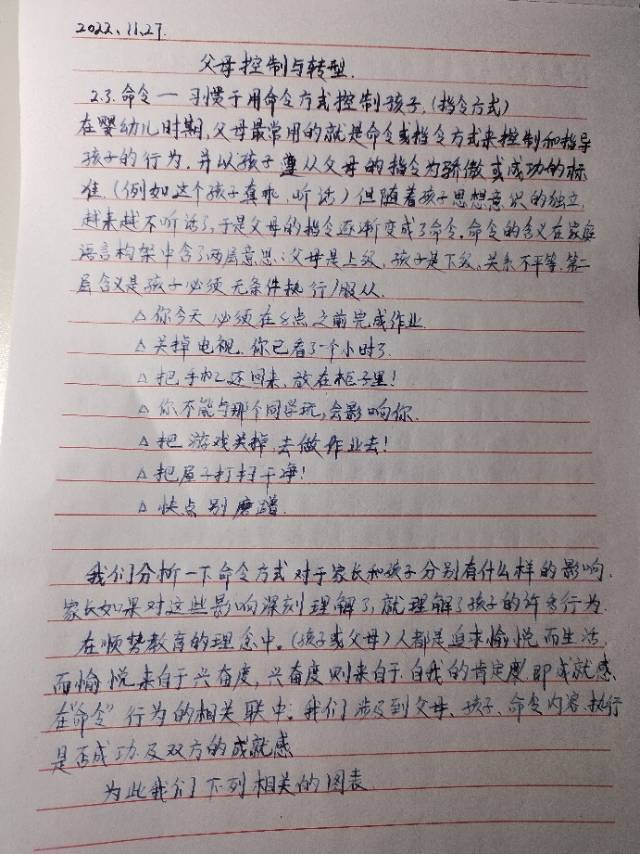 2022.11.27.
父母控制与转型.
2.3.命令一习惯于用命令方式控制孩子.(指令方式)
在婴幼儿时期,父母最常用的就是命令或指令方式来控制和指导
孩子的行为.并以孩子遵从父母的指令为骄傲或成功的标
准.(例如这个孩子真乖,听话)但随着孩子思想意识的独立,
越来越不听话了,于是父母的指令逐渐变成了命令,命令的含义在家庭
语言构架中含了两层意思:父母是上级,孩子是下级,关系不平等.第二
层含义是孩子必须无条件执行/服从.
△你今天必须在8点之前完成作业.
△关掉电视.你已看了一个小时了.
△把手机还回来,放在柜子里!
△你不能与那个同学玩,会影响你.
△把游戏关掉去做作业去!
△把屋子打扫干净!
△快点别磨蹭.
我们分析一下命令方式对于家长和孩子分别有什么样的影响.
家长如果对这些影响深刻理解了,就理解了孩子的许多行为.
在顺势教育的理念中.(孩子或父母)人都是追求愉悦而生活,
而愉悦来自于兴奋度,兴奋度则来自于自我的肯定度.即成就感.
在"命令"行为的相关联中:我们涉及到父母、孩子、命令内容.执行
是否成功.及双方的成就感
为此我们下列相关的图表